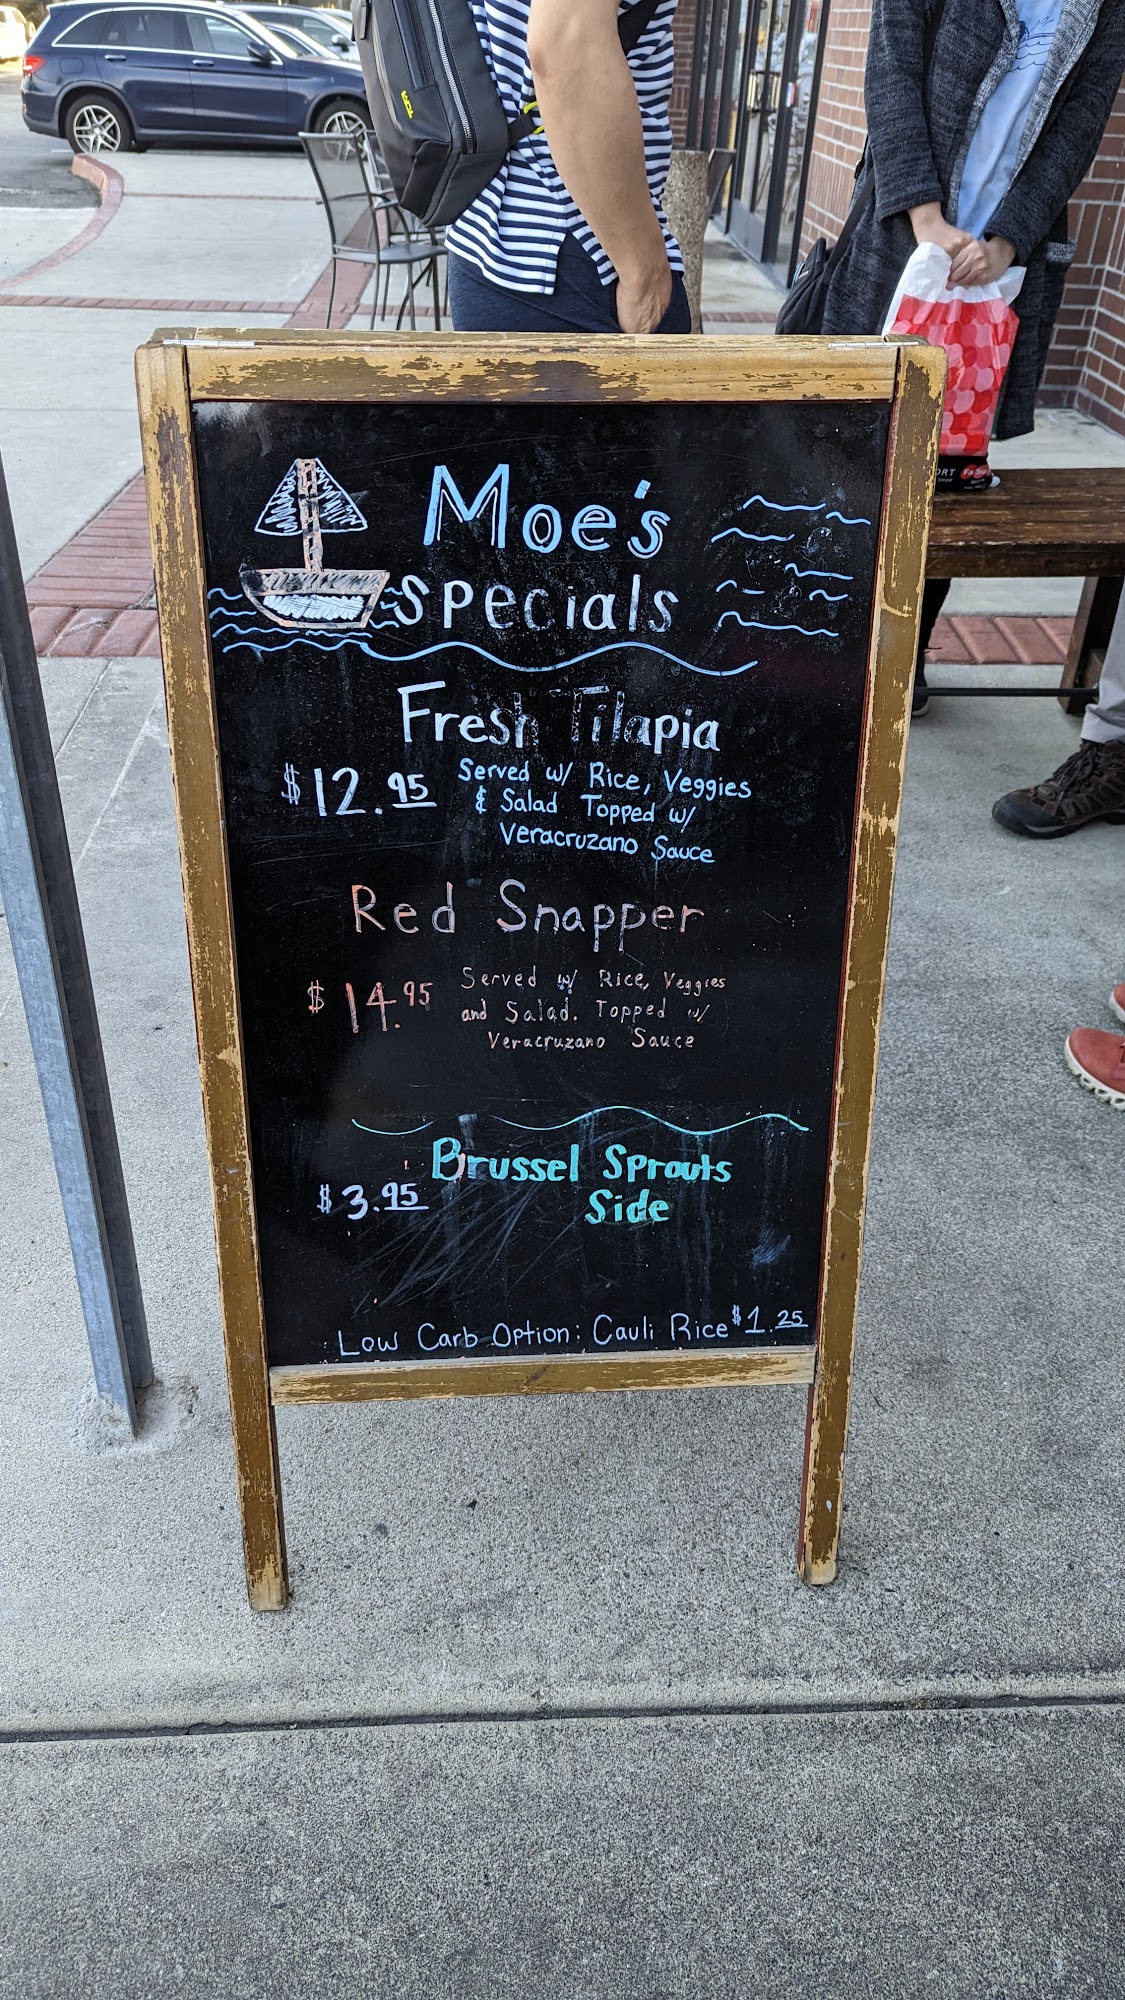 Moe's
Specials
Fresh Tilapia
$12.95
Served w/ Rice, Veggies
& Salad Topped w/
Veracruzano Sauce
Red Snapper
$14.95
Served w/ Rice, Veggies
and Salad. Topped w/
Veracruzano Sauce
Brussel Sprouts
Side
$3.95
Low Carb Option: Cauli Rice $1.25